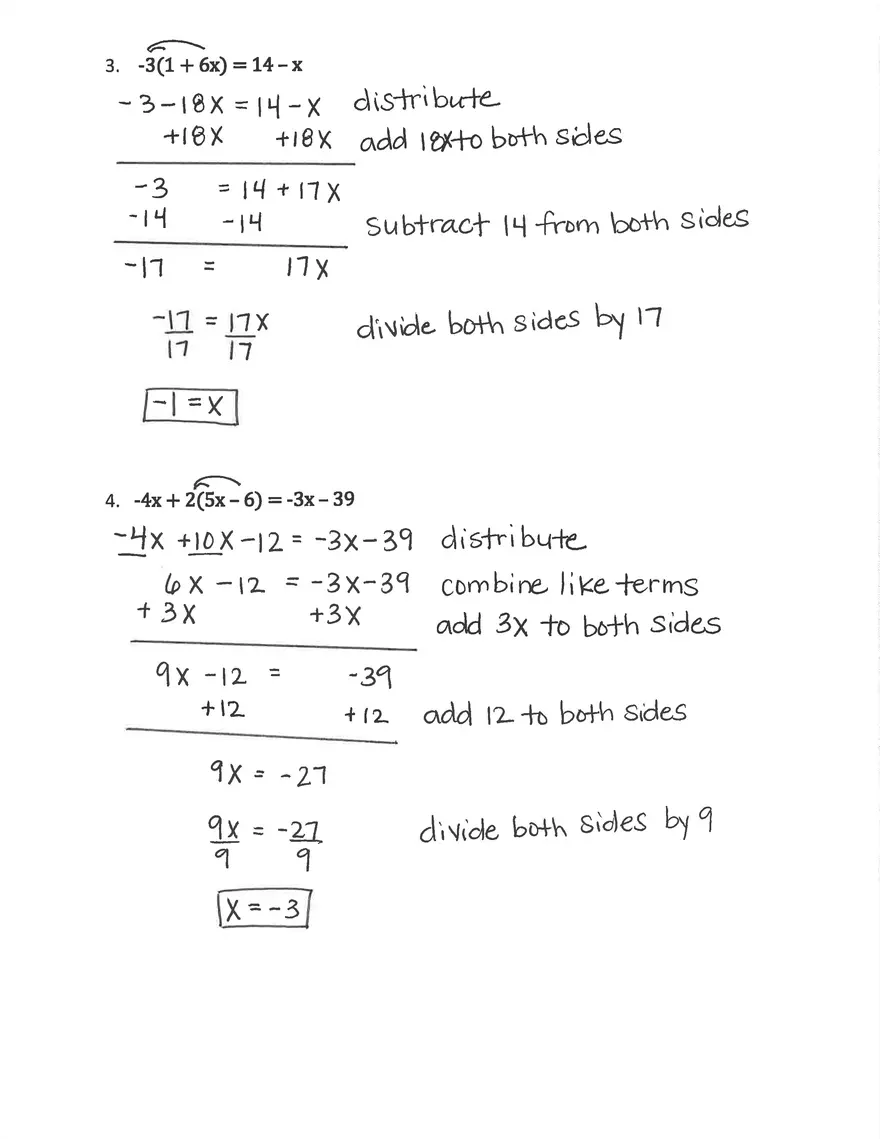 3. -3(1 + 6x) = 14 – x
-3-18x = 14-x distribute
+18x +18x add 18x to both sides
-3 = 14 + 17x
-14 -14 subtract 14 from both sides
-17 = 17x
-17 = 17x divide both sides by 17
17 17
-1 = x
4. -4x + 2(5x – 6) = -3x – 39
-4x +10x -12 = -3x-39 distribute
6x -12 = -3x-39 combine like terms
+ 3x +3x add 3x to both sides
9x -12 = -39
+12 +12 add 12 to both sides
9x = -27
9x = -27 divide both sides by 9
9 9
x = -3